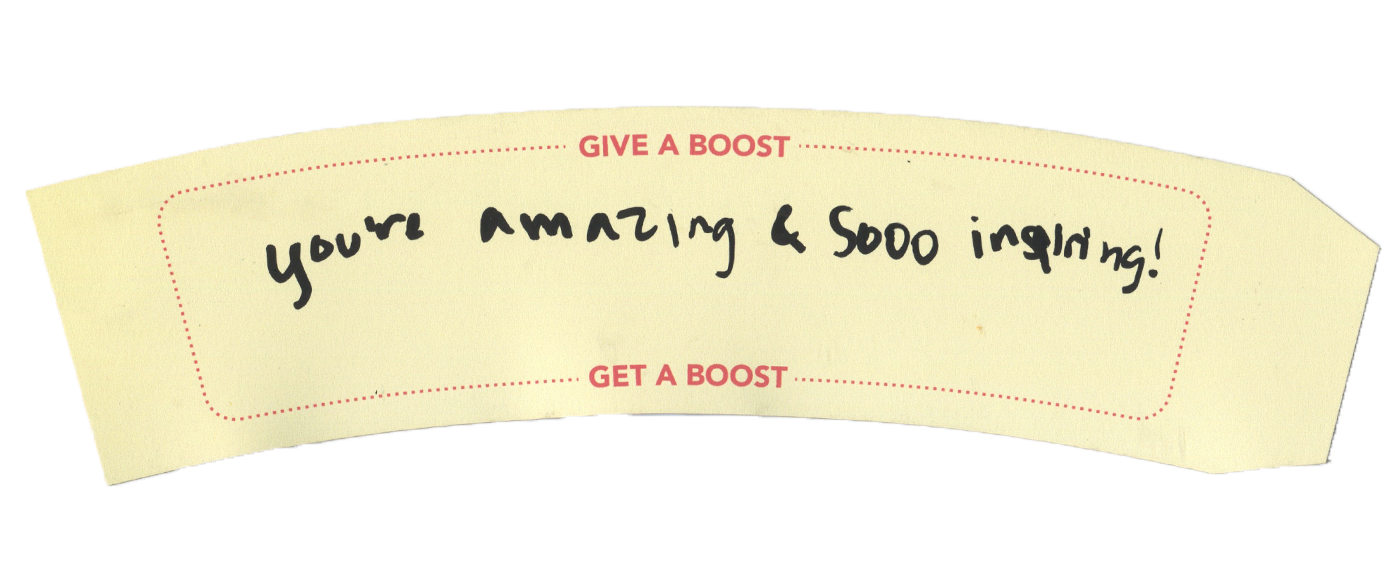 GIVE A BOOST
you're amazing & Sooo inspiring!
GET A BOOST